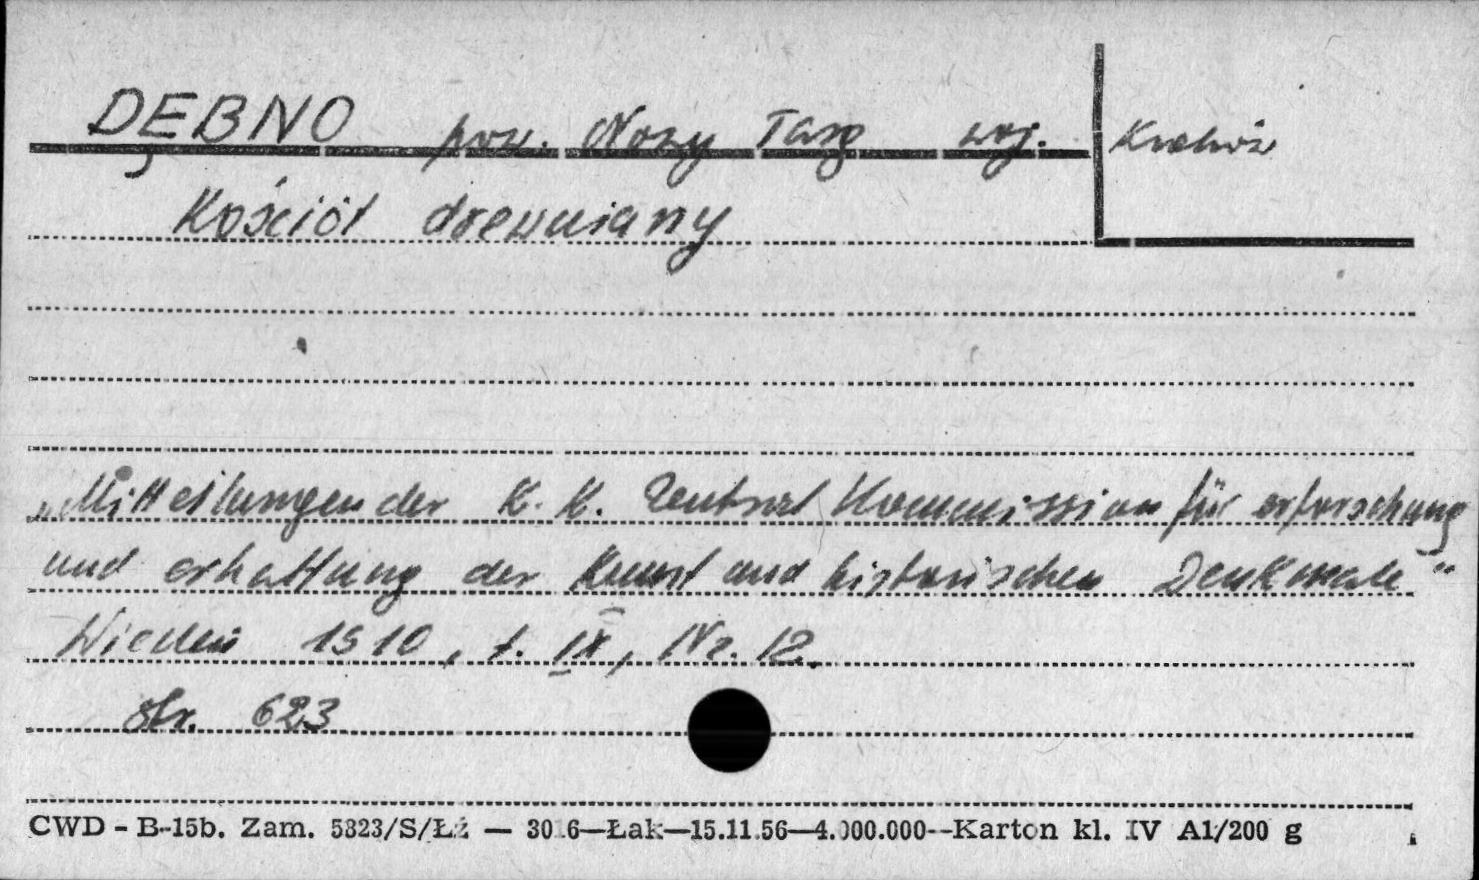 DĘBNO pow. Nowy Targ woj. Kraków
Kościół drewniany
„Mitteilungen der K. K. Zentral Kommission für erforschung
und erhaltung der Kunst und historischen Denkmale"
Wiedeń 1910, t. IX, Nr. 12.
str. 623
CWD - B-15b. Zam. 5323/S/Łź — 3016—Łak—15.11.56—4.000.000--Karton kl. IV A1/200 g